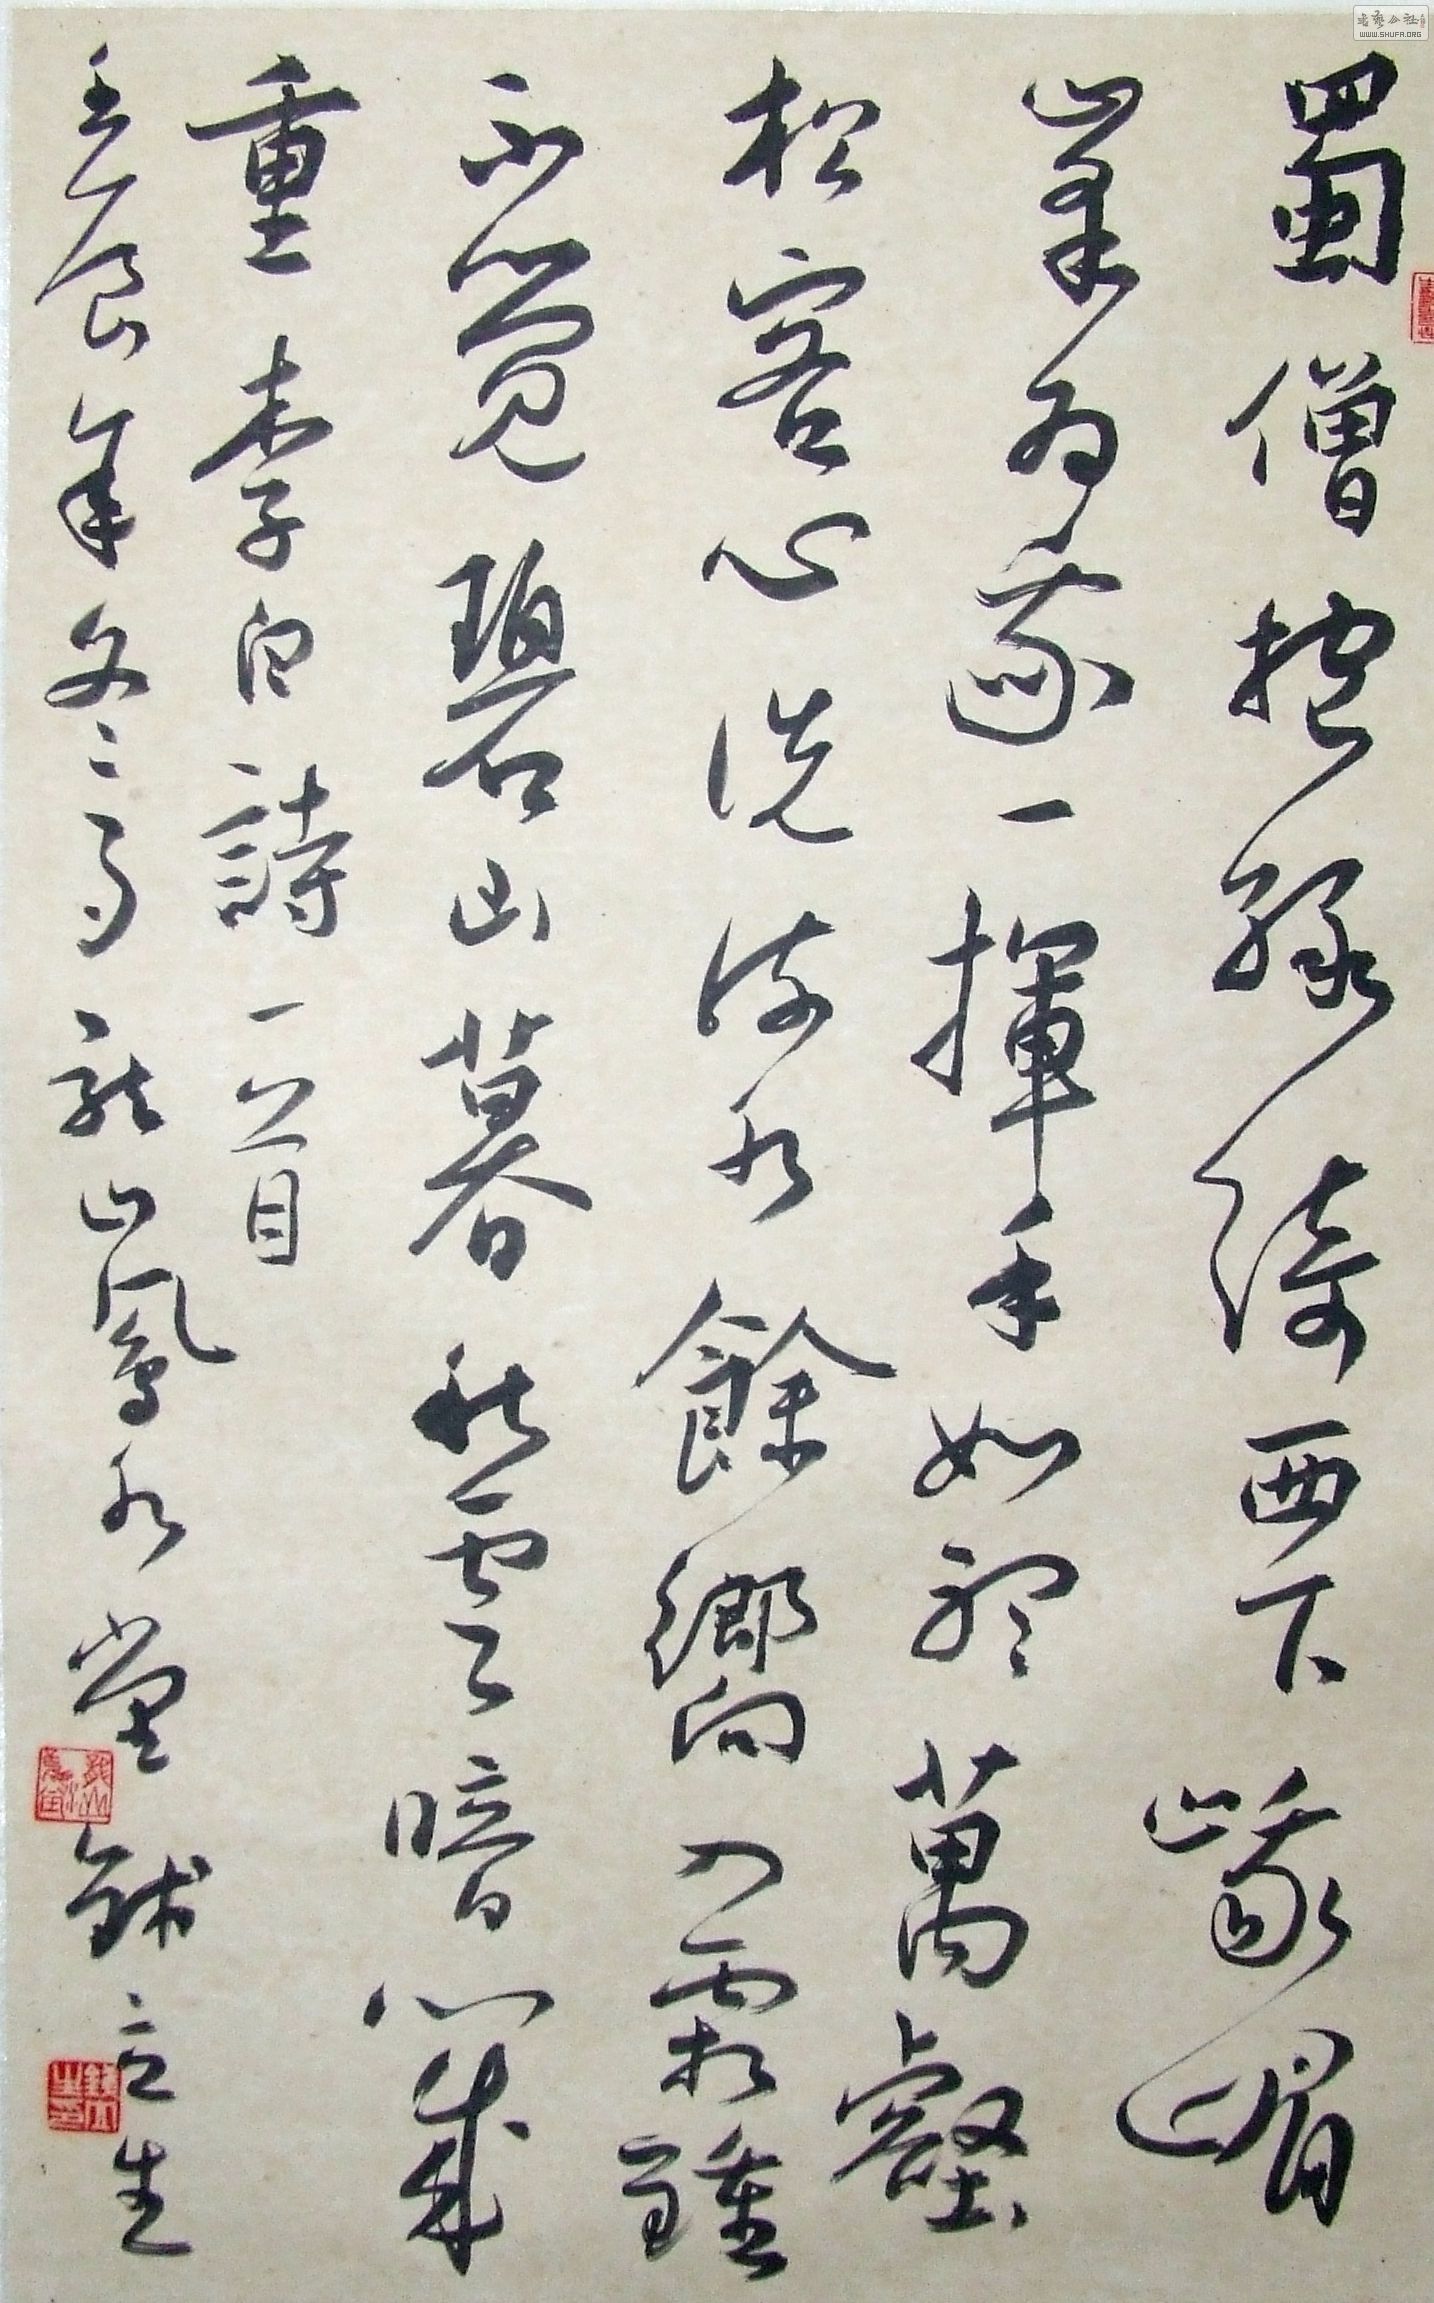 蜀僧抱綠綺西下峨嵋
峯為我一揮手如聽萬壑
松客心洗流水餘響入霜鐘
不覺碧山暮秋雲暗幾
重李白詩一首
壬辰年冬月龍山鳳水堂
立生
書藝公社
WWW.SHUFA.ORG